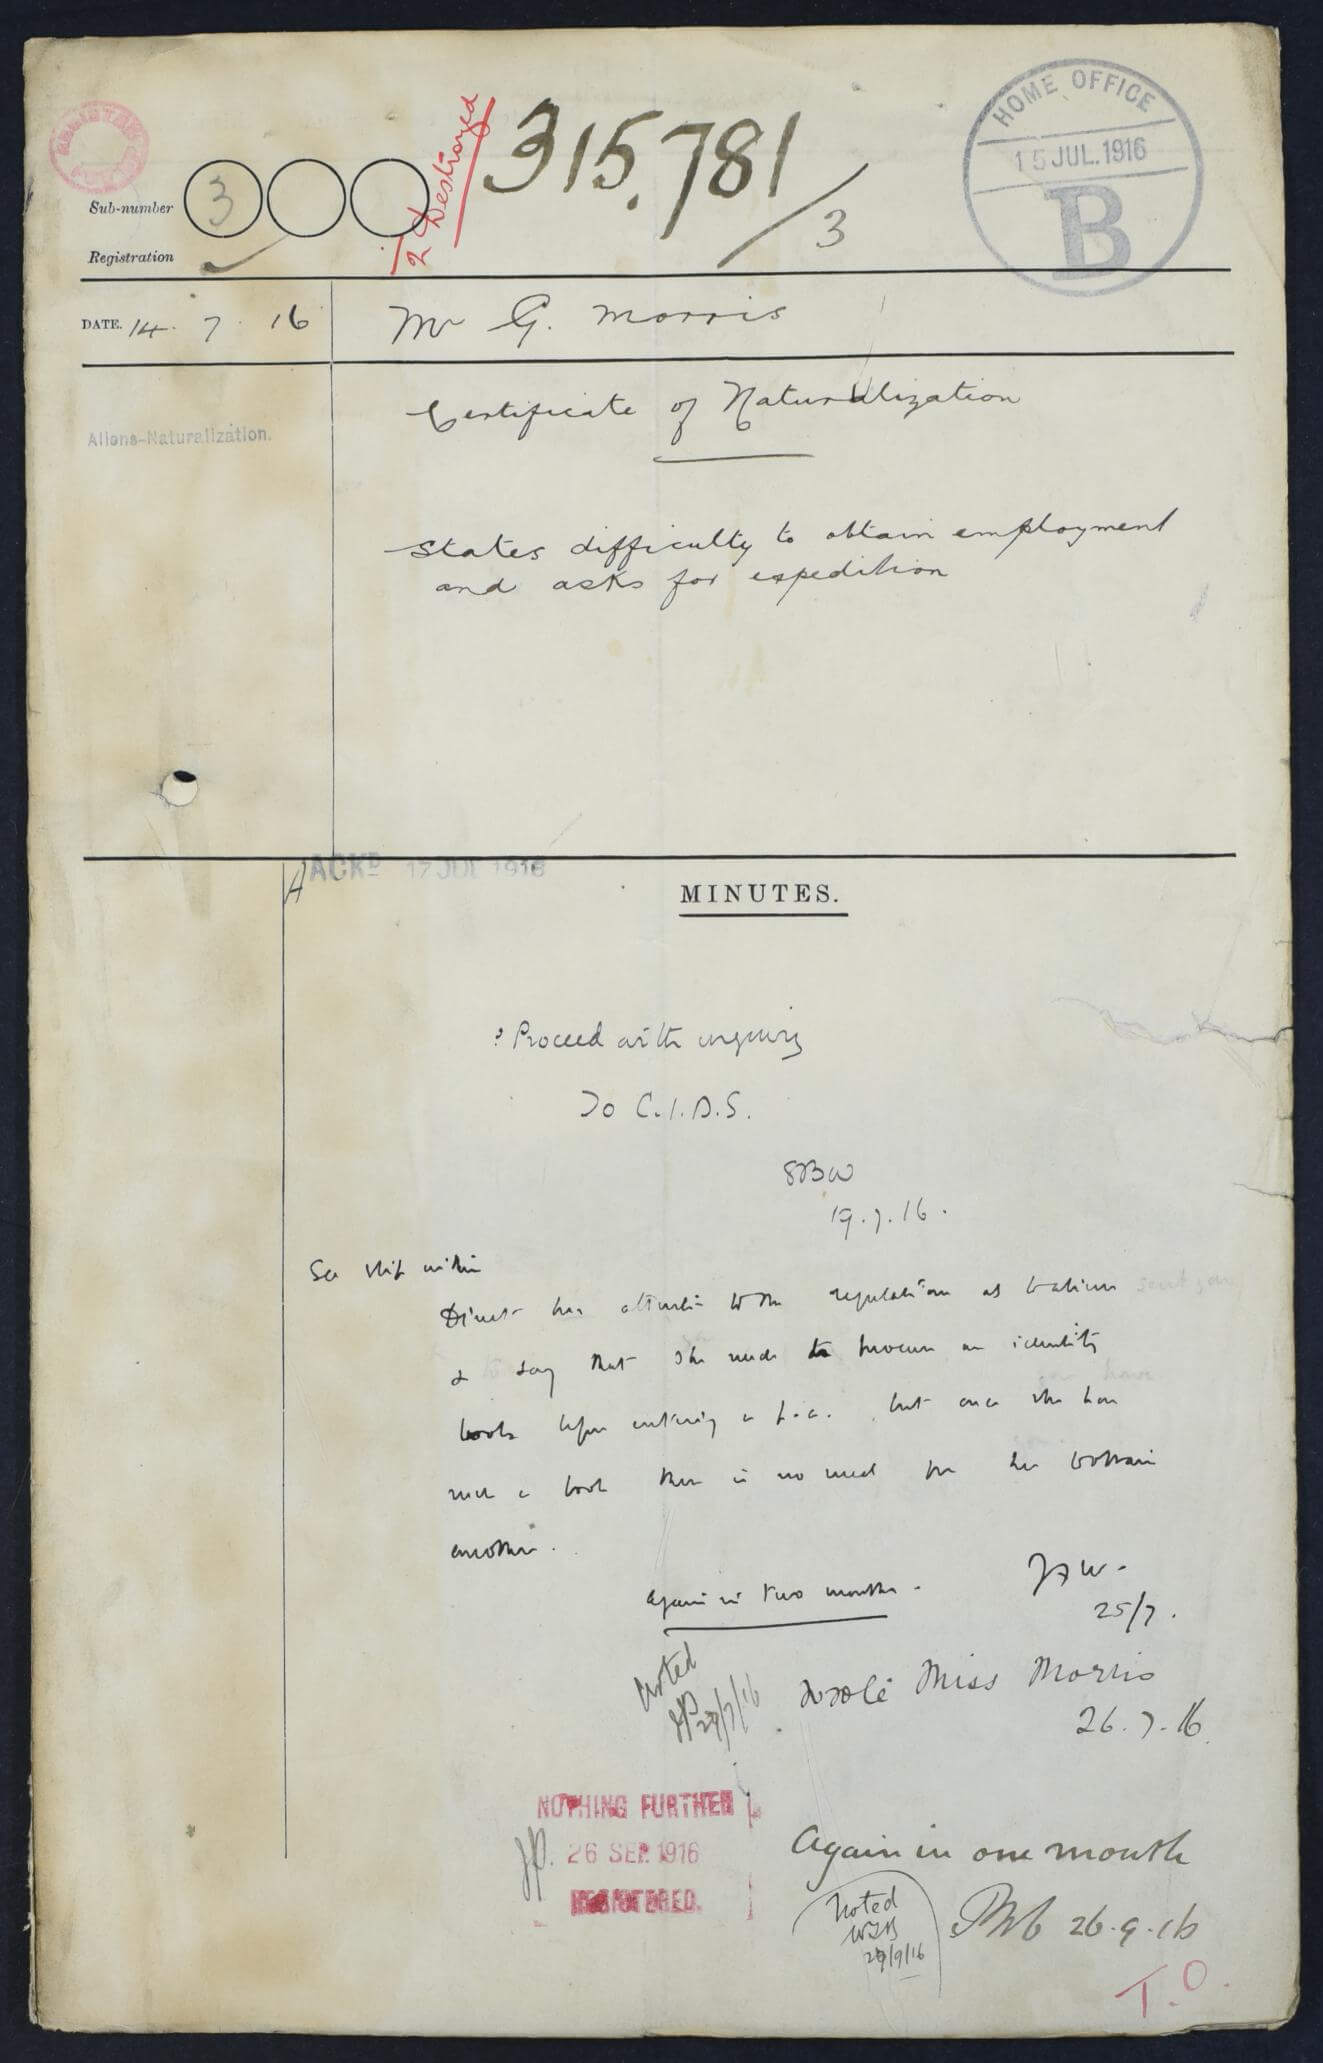 HOME OFFICE
15 JUL. 1916
B
2 Destroyed
315,781/3
Sub-number 3
Registration
DATE. 14. 7. 16
Mr G. Morris
Aliens-Naturalization.
Certificate of Naturalization
States difficulty to obtain employment
and asks for expedition
ACKD 17 JUL 1916
MINUTES.
? Proceed with inquiry
To C.I.D.S.
19.7.16.
See slip within
Direct her attention to the regulations as to
& say that she needs to procure an identity
book before entering a p.a. but once she has
such a book there is no need for her to obtain
another.
Again in two months.
25/7.
Noted
JP 27/7/16
Wrote Miss Morris
26.7.16.
NOTHING FURTHER
JP. 26 SEP. 1916
REGISTERED.
Again in one month
Noted
29/9/16
26.9.16
T.O.